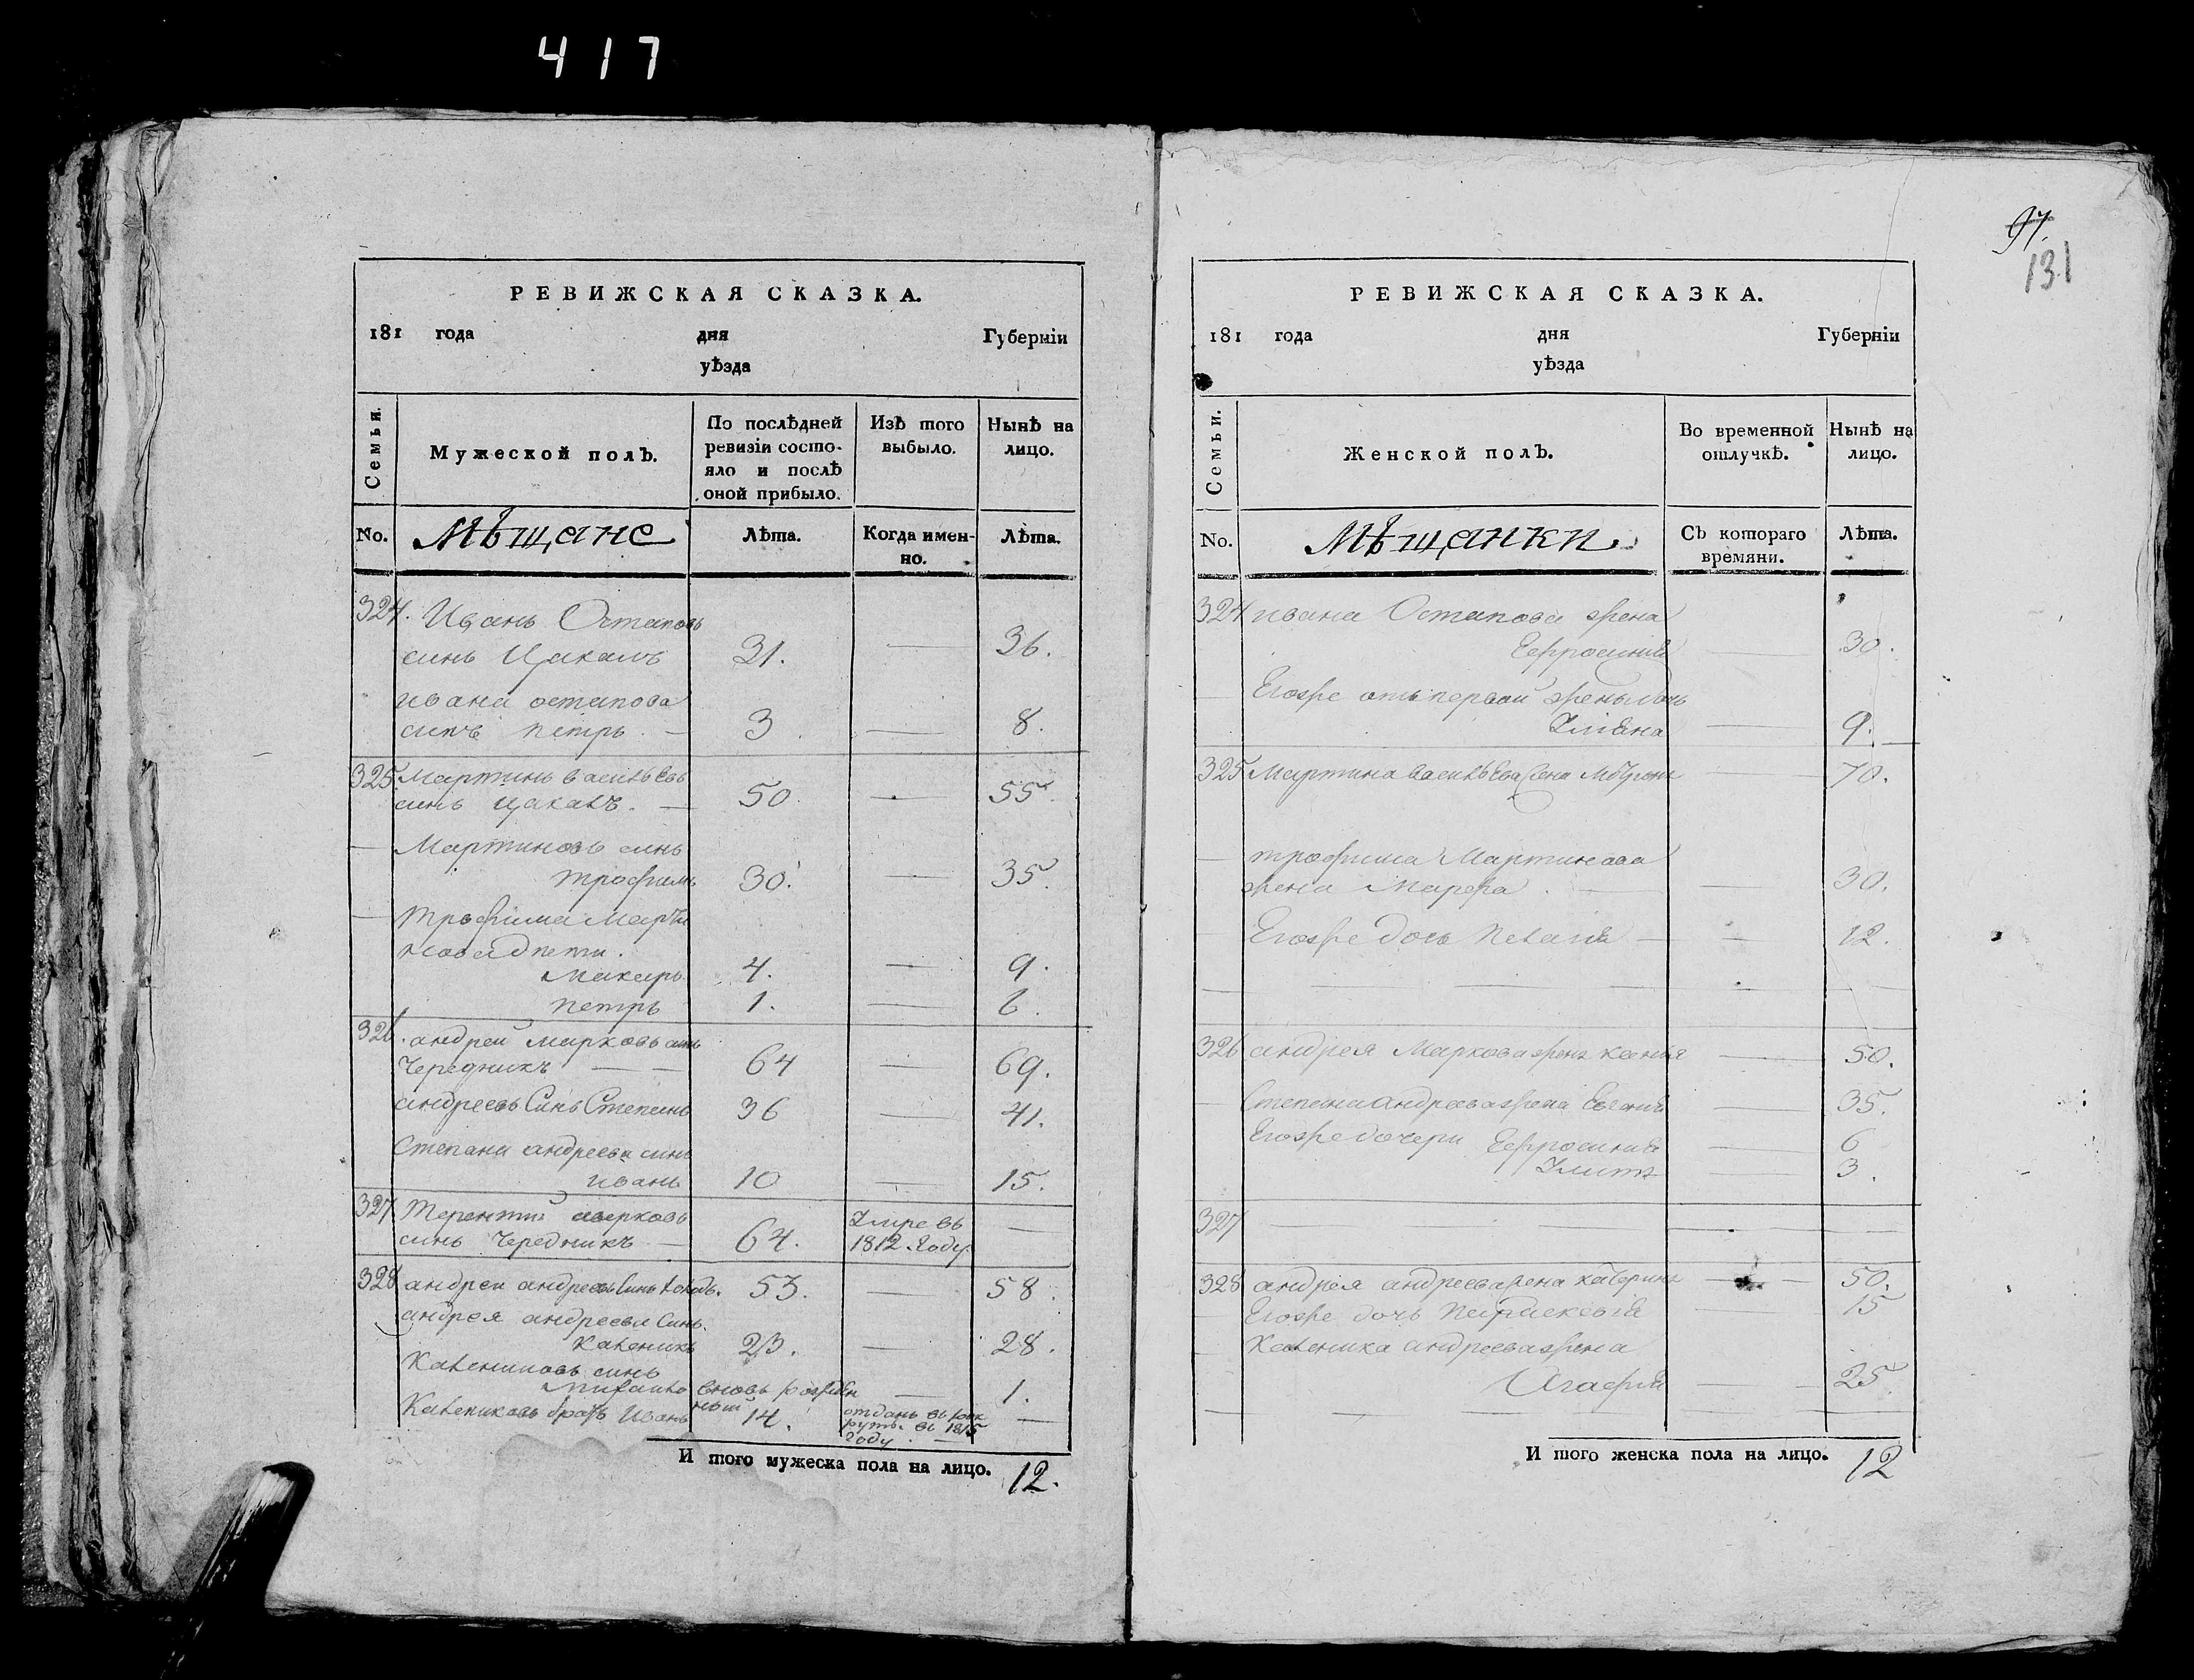 417
97.
131
РЕВИЖСКАЯ СКАЗКА.
181 года дня Губерніи
уѣзда
Семьи.
Мужеской полъ.
По послѣдней ревизіи состояло и послѣ оной прибыло.
Изъ того выбыло.
Нынѣ на лицо.
No.
Мѣщане
Лѣта.
Когда именно.
Лѣта.
324. Иванъ Остаповъ
синъ Цакалъ 31. — 36.
ивана остапова
синъ петръ. — 3 — 8.
325 Мартинъ васильевъ
синъ Цакалъ. — 50. — 55.
— Мартиновъ синъ
трофимъ 30. — 35.
— трофима Марти
нова дѣти.
Макаръ 4. — 9.
петръ 1. — 6.
326. андрей Марковъ синъ
Чередникъ — — 64 — 69.
андреевъ Синъ Степанъ 36 — 41.
Степана андреева синъ
иванъ 10 — 15.
327 Терентий аверковъ
синъ Чередникъ — 64. Умре въ 1812. Году. —
328 андрей андреевъ Синъ 53. — 58.
андрея андреева Синъ.
Каленикъ 23. — 28.
Калениковъ синъ
вновь рожденный — 1.
Калениковъ братъ Иванъ 14. отданъ въ рекруты въ 1815 Году. —
И того мужеска пола на лицо. 12.
РЕВИЖСКАЯ СКАЗКА.
181 года дня Губерніи
уѣзда
Семьи.
Женской полъ.
Во временной отлучкѣ.
Нынѣ на лицо.
No.
Мѣщанки.
Съ котораго времяни.
Лѣта.
324 ивана Остапова жена
Ефросиния — 30.
— Егожре отъ первой жены дочь
Улияна — 9.
325 Мартина васильева жена — 70.
— трофима Мартинова
жена Марфа. — — 30.
Егожре дочь Пелагия — — 12.
326 андрея Маркова жена — 50.
— Степана андреева жена — 35.
Егожре дочери Ефросиния — 6
Улита — 3.
327 — — — —
328 андрея андреева жена катерина — 50.
— Егожре дочь параскевия — 15
— Каленика андреева жена
Агафия — 25.
И того женска пола на лицо. 12